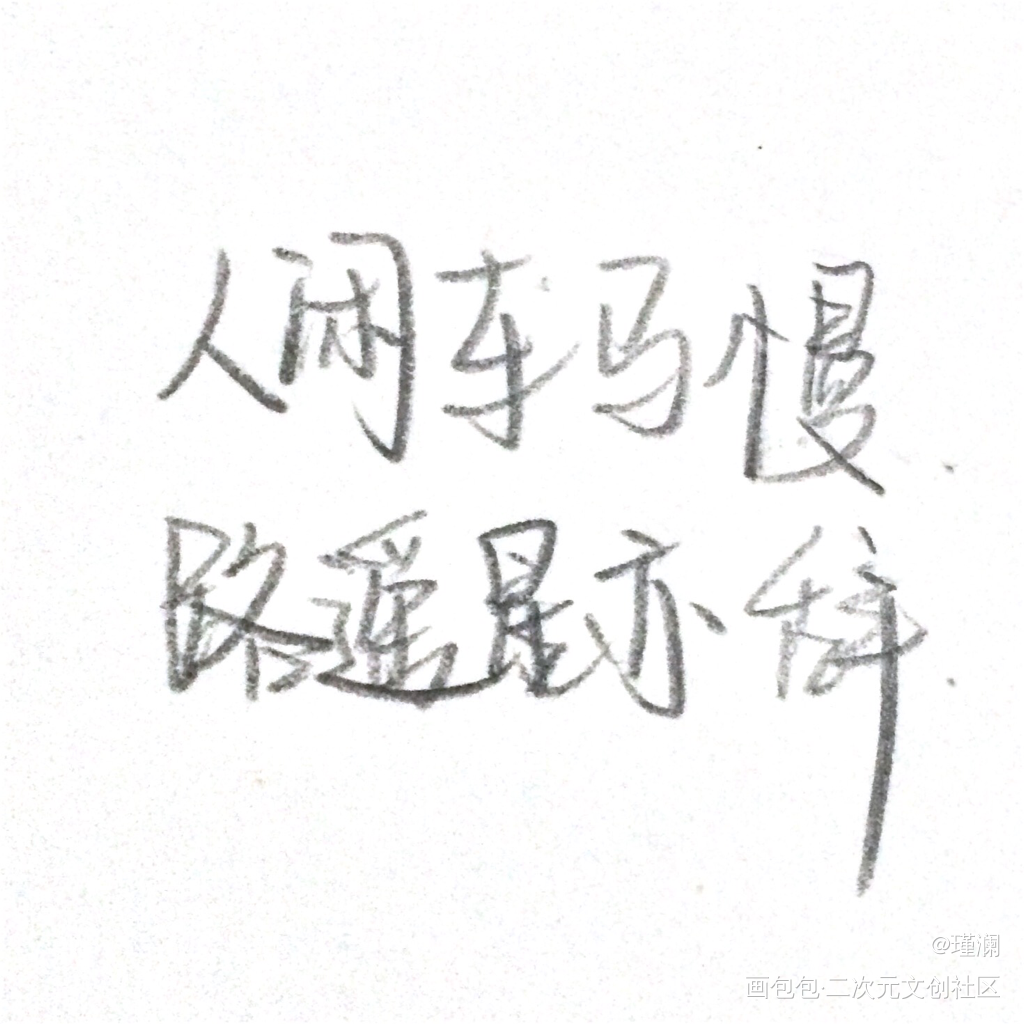 人闲车马慢.
路遥星亦辞.
@瑾澜
画包包·二次元文创社区